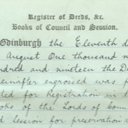 Register of Deeds, &c.
Books of Council and Session.
Edinburgh the Eleventh d
August One thousand n
hundred and nineteen the D
hereinafter written was p
for Registration in t
Books of the Lords of Counc
and Session for preservation